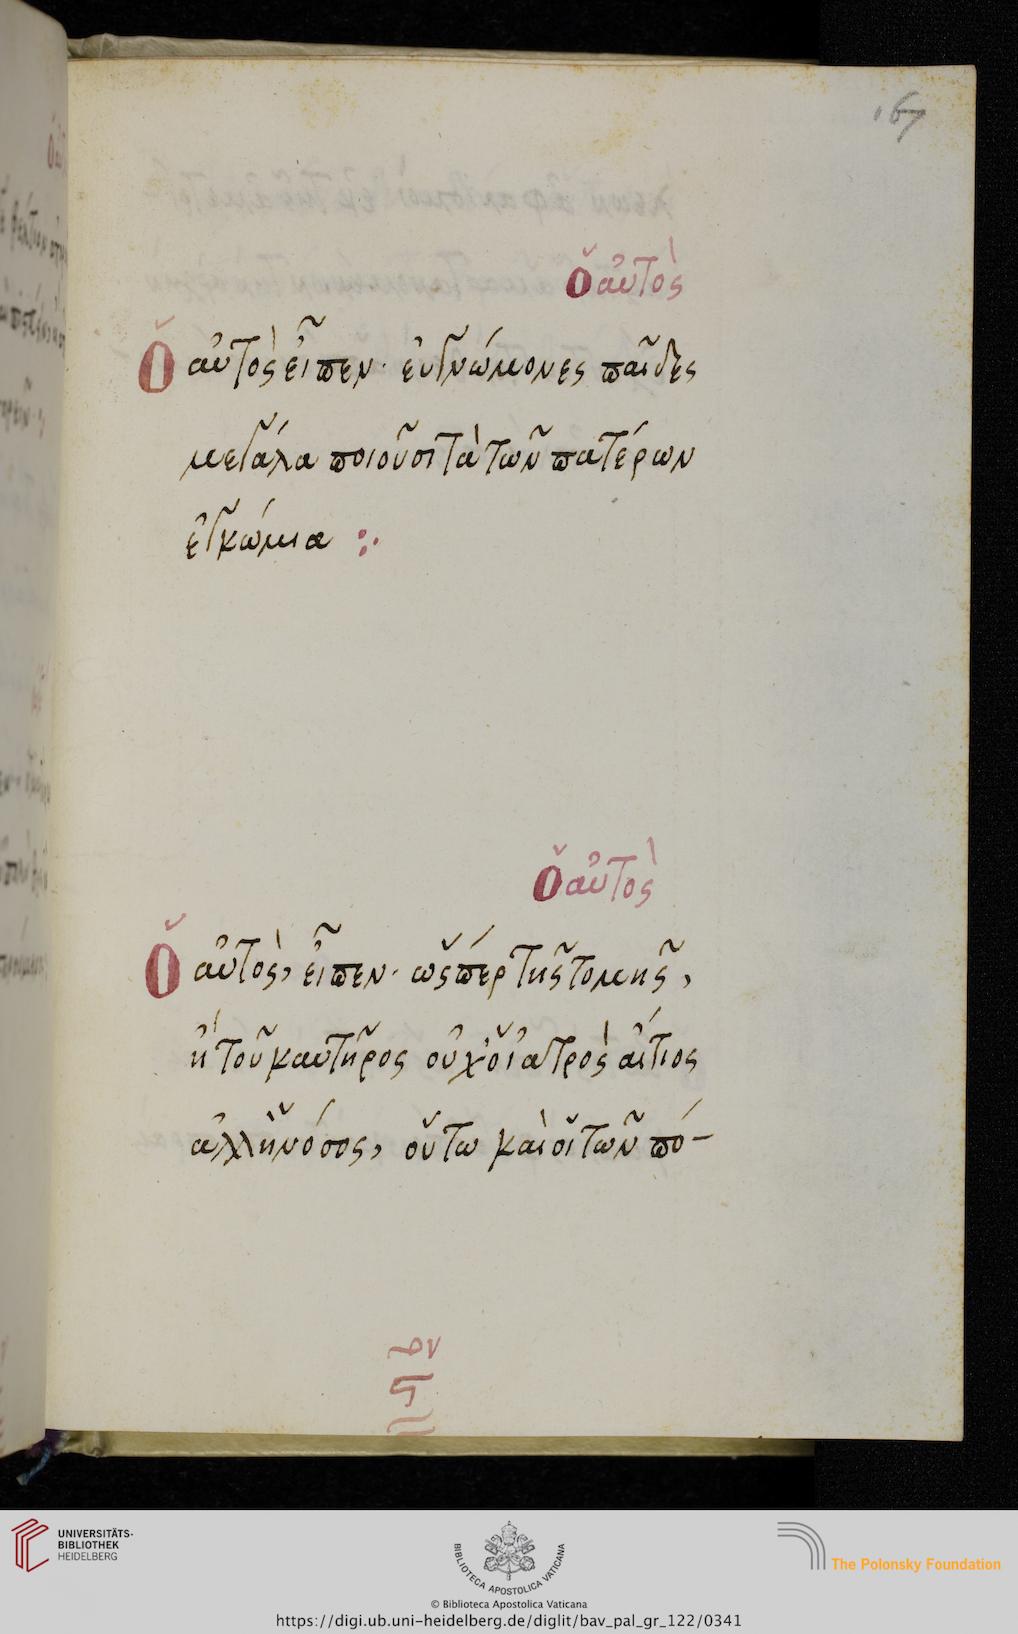 167
Ὁ αὐτὸς
Ὁ αὐτὸς εἶπεν· εὐγνώμονες παῖδες
μεγάλα ποιοῦσι τὰ τῶν πατέρων
ἐγκώμια :·
Ὁ αὐτὸς
Ὁ αὐτὸς, εἶπεν· ὥσπερ τῆς τομῆς,
ἢ τοῦ καυτῆρος οὐχ ὁ ἰατρὸς αἴτιος
ἀλλ' ἡ νόσος, οὕτω καὶ οἱ τῶν πό-
UNIVERSITÄTS-
BIBLIOTHEK
HEIDELBERG
BIBLIOTECA APOSTOLICA VATICANA
The Polonsky Foundation
© Biblioteca Apostolica Vaticana
https://digi.ub.uni-heidelberg.de/diglit/bav_pal_gr_122/0341